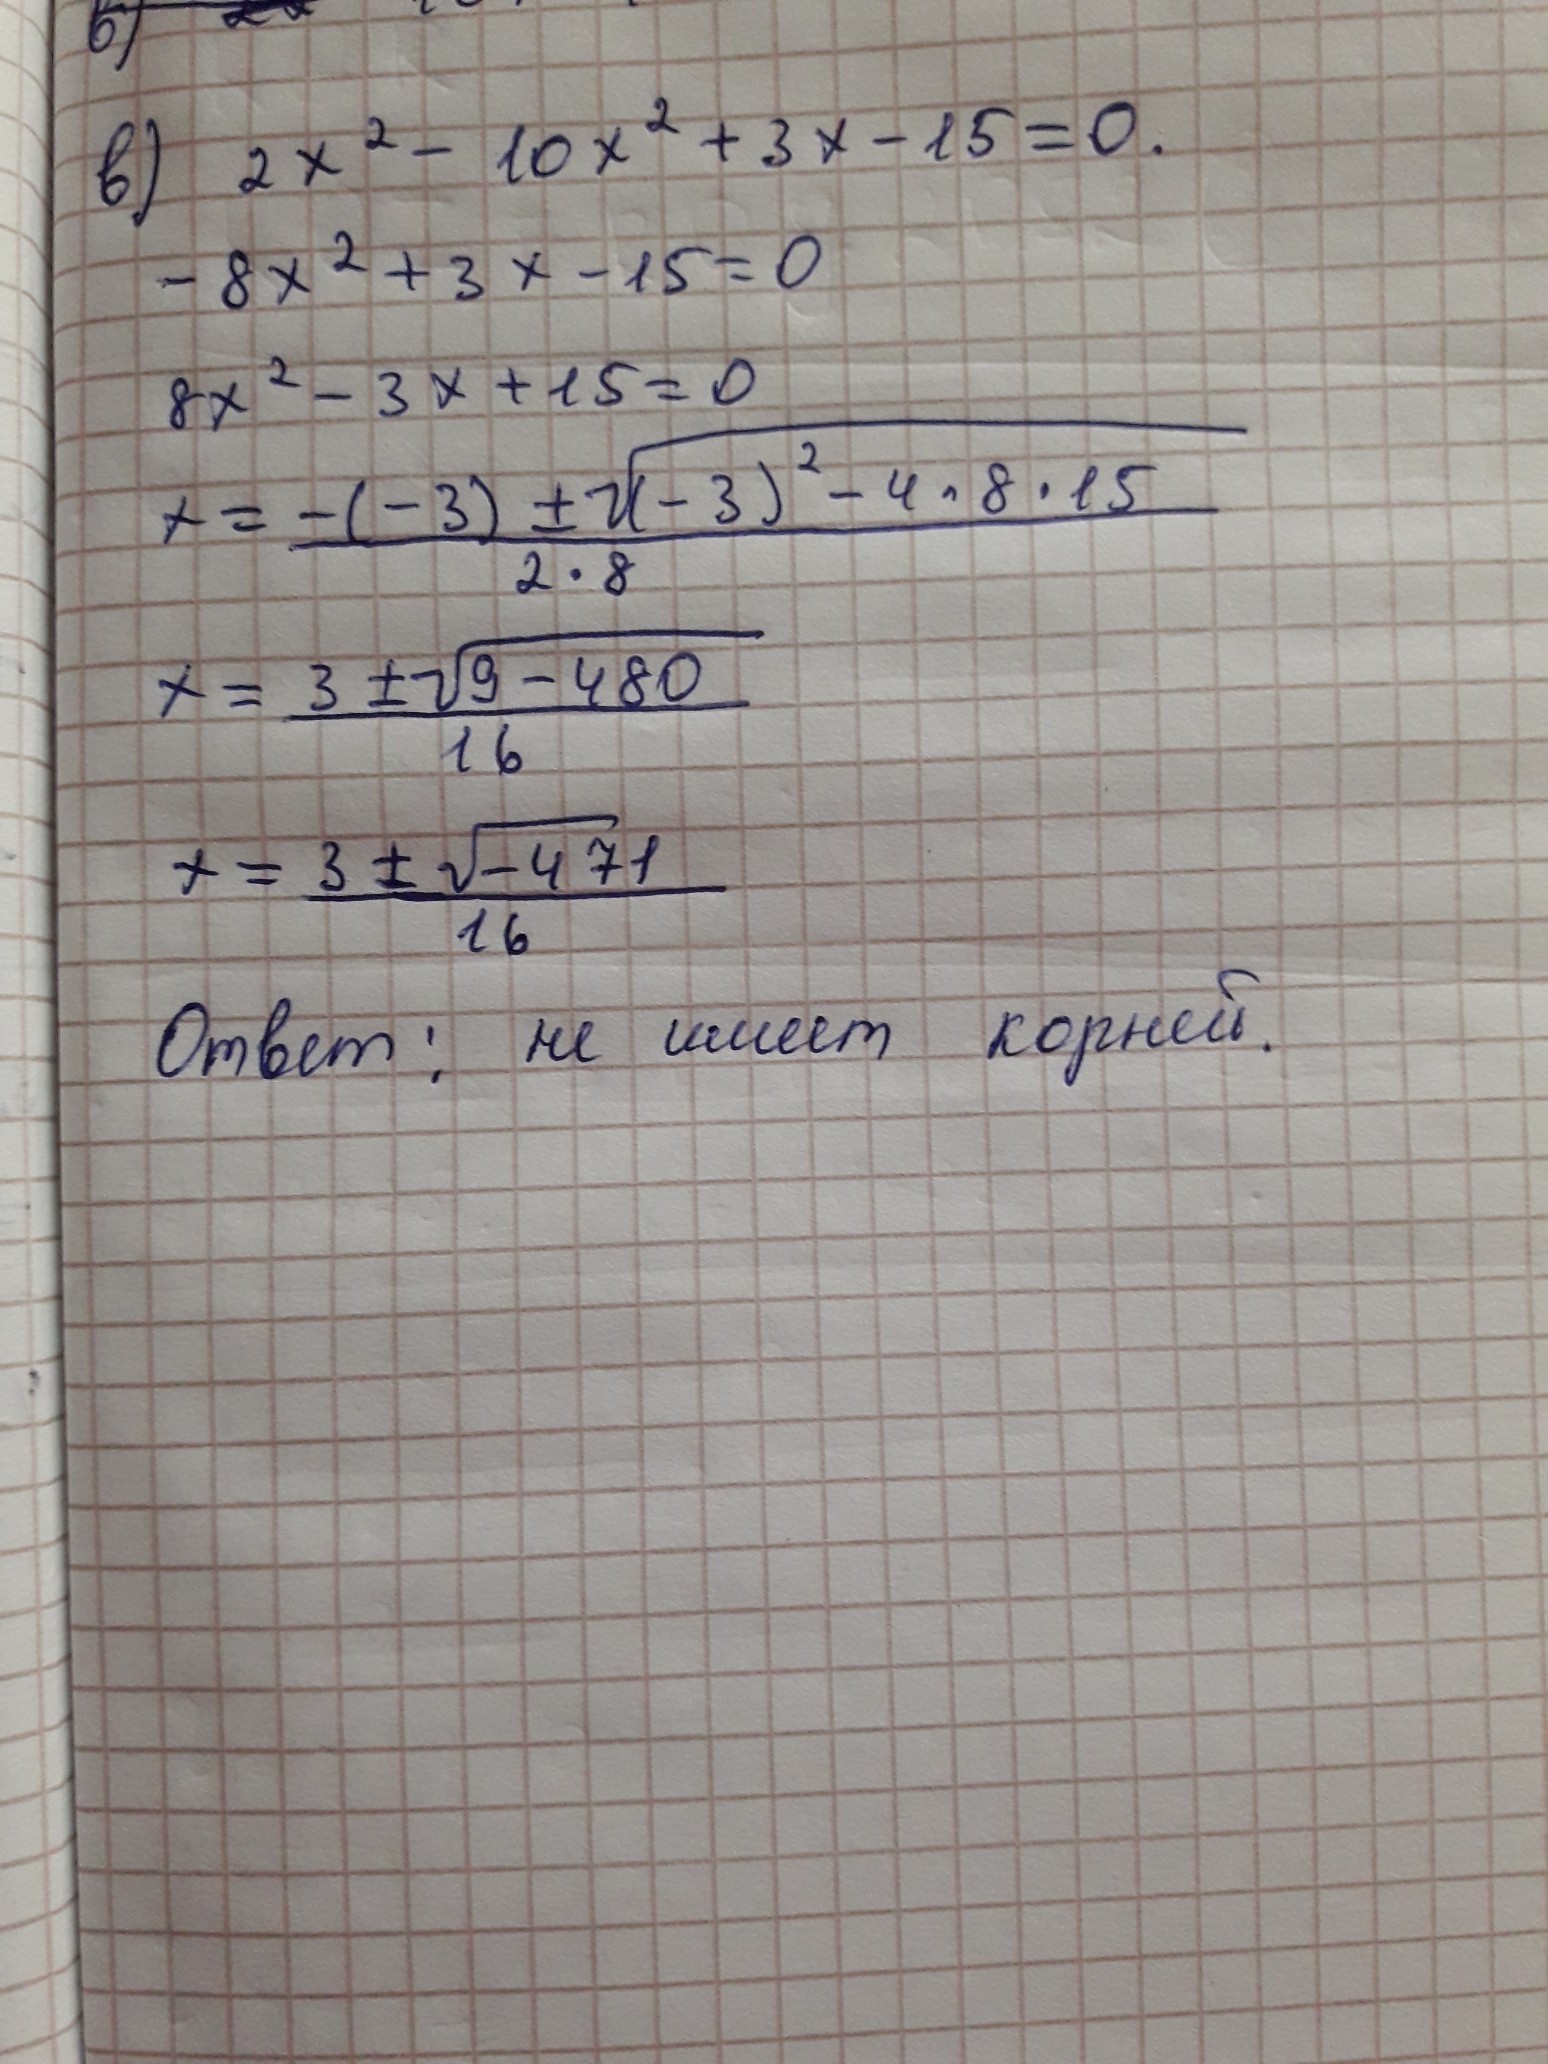 б)
в) 2x² - 10x² + 3x - 15 = 0.
- 8x² + 3x - 15 = 0
8x² - 3x + 15 = 0
x = -(-3) ± √(-3)² - 4 · 8 · 15
2 · 8
x = 3 ± √9 - 480
16
x = 3 ± √-471
16
Ответ: не имеет корней.